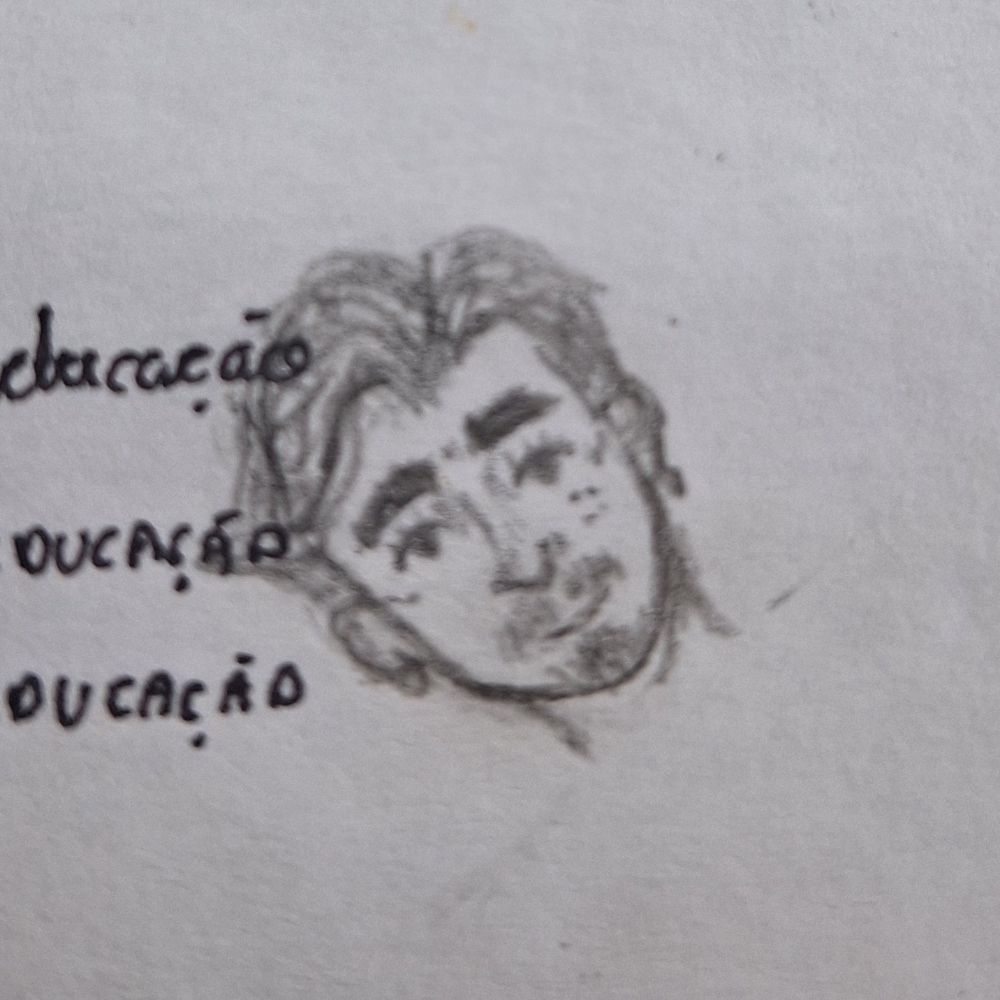 educação
DUCAÇÃO
DUCAÇÃO